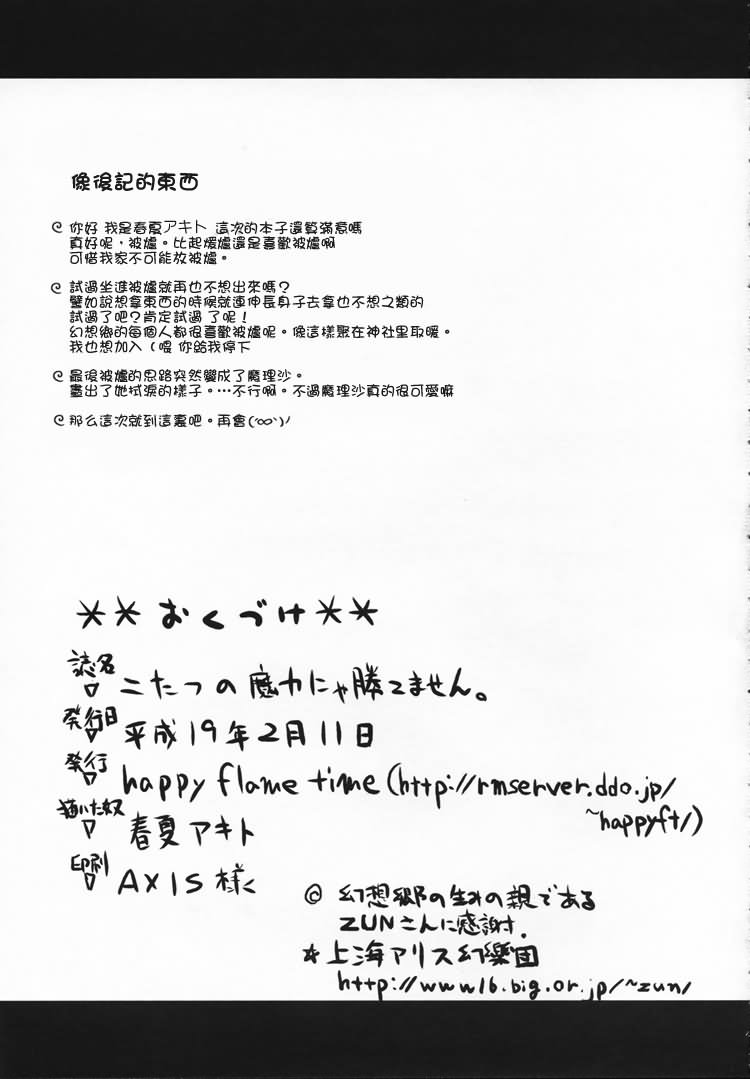 像後記的東西
你好 我是春夏アキト 這次的本子還算滿意嗎
真好呢，被爐。比起煖爐還是喜歡被爐啊
可惜我家不可能放被爐。
試過坐進被爐就再也不想出來嗎？
譬如說想拿東西的時候就連伸長身子去拿也不想之類的
試過了吧？肯定試過 了呢！
幻想鄉的每個人都很喜歡被爐呢。像這樣聚在神社里取暖。
我也想加入（喂 你給我停下
最後被爐的思路突然變成了魔理沙。
畫出了她拭淚的樣子。…不行啊。不過魔理沙真的很可愛嘛
那么這次就到這裏吧。再會(´∞`)ﾉ
＊＊おくづけ＊＊
誌名
▽ こたつの魔力にゃ勝てません。
発行日
▽ 平成19年2月11日
発行
▽ happy flame time (http://rmserver.ddo.jp/
~happyft/)
描いた奴
▽ 春夏アキト
印刷
▽ AXIS様
© 幻想郷の生みの親である
ZUNさんに感謝.
☆上海アリス幻樂団
http://www16.big.or.jp/~zun/